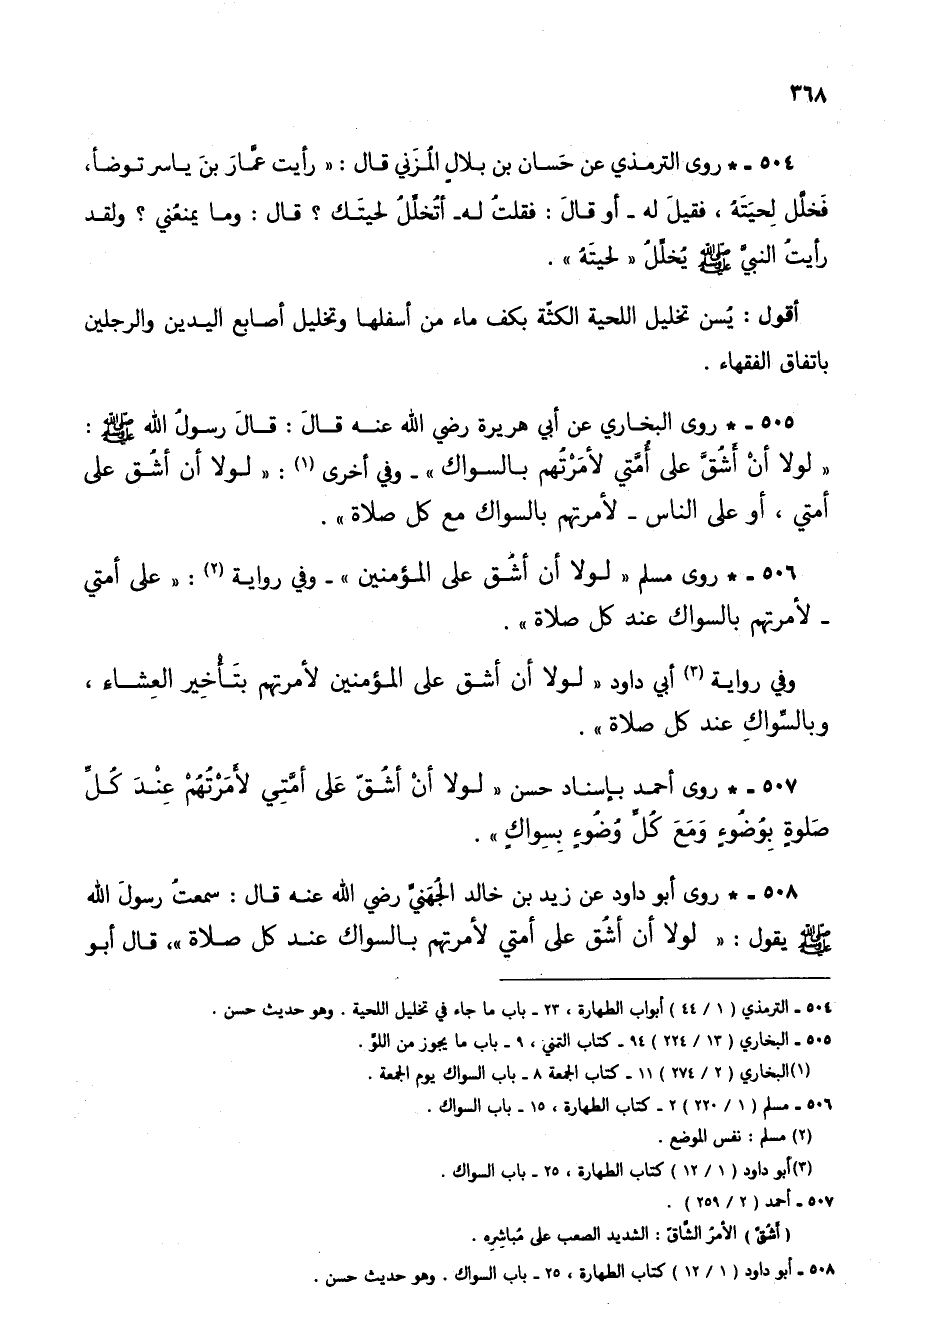 ٣٦٨
٥٠٤ ـ * روى الترمذي عن حَسان بن بلالٍ المُزَني قال : « رأيت عمَّارَ بنَ ياسر توضأ،
فَخلَّل لِحيَتَهُ ، فقيلَ له ـ أو قالَ : فقلتُ لـه ـ أتُخلِّلُ لحيتَـك ؟ قال : وما يمنعُني ؟ ولقد
رأيتُ النبيَّ ﷺ يُخلِّلُ « لحيتَهُ » .
أقول : يُسن تخليل اللحية الكثّة بكف ماء من أسفلها وتخليل أصابع اليدين والرجلين
باتفاق الفقهاء .
٥٠٥ ـ * روى البخاري عن أبي هريرة رضي الله عنـه قـالَ : قـالَ رسولُ الله ﷺ :
« لولا أنْ أَشُقَّ على أُمَّتي لأمَرْتُهم بـالسـواك » ـ وفي أخرى (١) : « لـولا أن أشُـق على
أمتي ، أو على الناس ـ لأمرتهم بالسواك مع كل صلاة » .
٥٠٦ ـ * روى مسلم « لـولا أن أشُـق على المـؤمنين » ـ وفي روايـة (٢) : « على أمتي
ـ لأمرتهم بالسواك عند كل صلاة » .
وفي روايـة (٣) أبي داود « لـولا أن أشـق على المـؤمنين لأمرتهم بتَـأخِير العِشـاء ،
وبالسِّواكِ عند كل صلاة » .
٥٠٧ ـ * روى أحمـد بـإسنـاد حسن « لـولا أنْ أشُـقّ عَلى أمَّتِي لأَمَرْتُهُمْ عِنْـدَ كُـلِّ
صَلوةٍ بِوُضُوءٍ وَمَعَ كُلِّ وُضُوءٍ بِسِواكٍ » .
٥٠٨ ـ * روى أبو داود عن زيـد بن خالد الجُهَنيِّ رضي الله عنـه قال : سمعتُ رسولَ الله
ﷺ يقول : « لولا أن أشُق على أمتي لأمرتهم بـالسواك عنـد كل صـلاة »، قـال أبـو
٥٠٤ ـ الترمذي ( ١ / ٤٤ ) أبواب الطهارة ، ٢٣ ـ باب ما جاء في تخليل اللحية . وهو حديث حسن .
٥٠٥ ـ البخاري ( ١٣ / ٢٢٤ ) ٩٤ ـ كتاب التمني ، ٩ ـ باب ما يجوز من اللوّ .
(١)البخاري ( ٢ / ٢٧٤ ) ١١ ـ كتاب الجمعة ٨ ـ باب السواك يوم الجمعة .
٥٠٦ ـ مسلم ( ١ / ٢٢٠ ) ٢ ـ كتاب الطهارة ، ١٥ ـ باب السواك .
(٢) مسلم : نفس الموضع .
(٣)أبو داود ( ١ / ١٢ ) كتاب الطهارة ، ٢٥ ـ باب السواك .
٥٠٧ ـ أحمد ( ٢ / ٢٥٩ ) .
( أَشُقّ ) الأمرُ الشَّاقّ : الشديد الصعب على مُباشِرِه .
٥٠٨ ـ أبو داود ( ١ / ١٢ ) كتاب الطهارة ، ٢٥ ـ باب السواك . وهو حديث حسن .